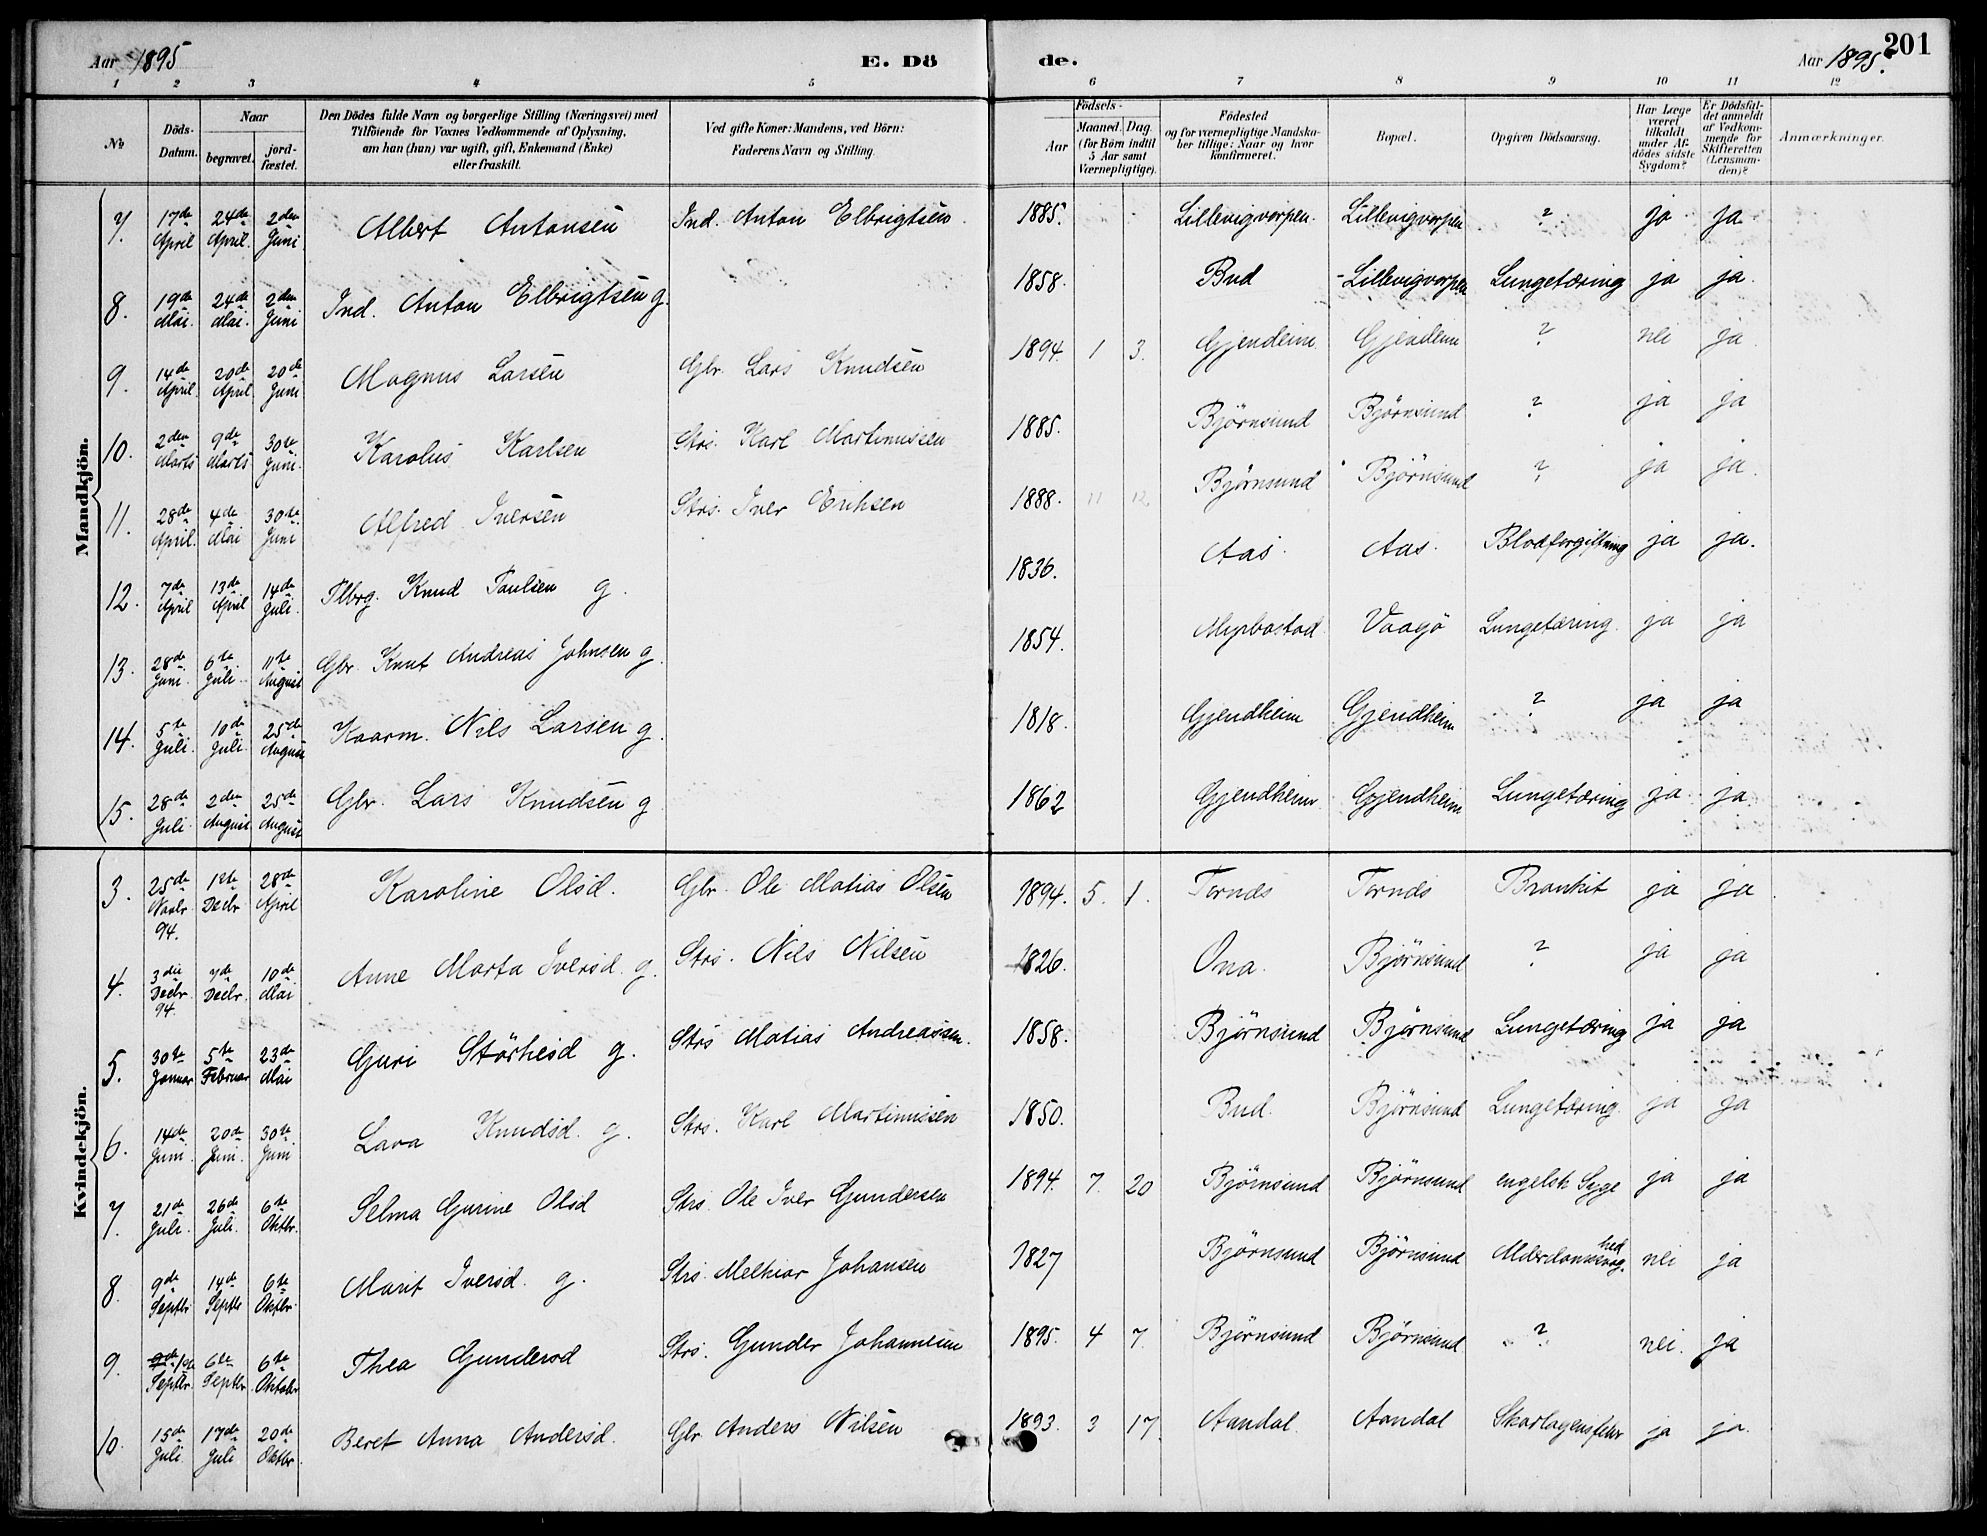 Aar 1895 E. Dö de. Aar 1895. 201
1 2 3 4 5 6 7 8 9 10 11 12
No
Döds-Datum.
Naar
begravet.
jord-fæstet.
Den Dödes fulde Navn og borgerlige Stilling (Næringsvei) med
Tilföiende for Voxnes Vedkommende af Oplysning,
om han (hun) var ugift, gift, Enkemand (Enke)
eller fraskilt.
Ved gifte Koner: Mandens, ved Börn:
Faderens Navn og Stilling.
Födsels-
Aar
Maaned. Dag.
(for Börn indtil
5 Aar samt
Værnepligtige).
Födested
og for værnepligtige Mandska-
ber tillige: Naar og hvor
konfirmeret.
Bopæl.
Opgiven Dödsaarsag.
Har Læge
været
tilkaldt
under Af-
dödes sidste
Sygdom?
Er Dödsfal-
det anmeldt
af Vedkom-
mende for
Skifteretten
(Lensman-
den)?
Anmærkninger.
Mandkjön.
7. 17de April 24de April. 2den Juni Albert Antonsen Ind. Anton Elbrigtsen 1885. Lillevigvorpen. Lillevigvorpen ? ja ja
8. 19de Mai. 24de Mai. 2den Juni Ind. Anton Elbrigtsen g. 1858. Bud Lillevigvorpen Lungetæring ja ja.
9. 14de April. 20de April 20de Juni Magnus Larsen Gbr. Lars Knudsen 1894. 1 3. Gjendeim Gjendeim ? nei ja
10. 2den Marts 9de Marts 30te Juni. Karolus Karlsen Strs. Karl Martinussen 1885. Björnsund Björnsund ? ja ja
11. 28de April. 4de Mai 30te Juni Alfred Iversen Strs. Iver Eriksen 1888. 11 12. Björnsund Björnsund ? ja ja.
12. 7de April 13de April 14de Juli. Plbrg. Knud Paulsen g. 1836. Aas. Aas. Blodforgiftning ja ja.
13. 28de Juni. 6te Juli. 11te August Gbr. Knut Andreas Johnsen g. 1854. Myrbostad Vaagö Lungetæring. ja ja
14. 5te Juli. 10de Juli. 25de August Kaarm. Nils Larsen g. 1818. Gjendheim Gjendheim ? ja ja
15. 28de Juli 2den August 25de August Gbr. Lars Knudsen g 1862 Gjendheim Gjendheim Lungetæring ja ja
Kvindekjön.
3. 25de Novbr. 94. 1ste Decbr 28de April Karoline Olsd. Gbr. Ole Matias Olsen 1894. 5. 1. Tornes Tornes Bronkit ja ja
4. 3die Decbr. 94. 7de Decbr. 10de Mai Anne Marta Iversd. g. Strs. Nils Nilsen 1826. Ona. Björnsund ? ja ja
5. 30te Januar 5te Februar 23de Mai Guri Störkesd g. Strs Matias Andreassen. 1858. Björnsund Björnsund Lungetæring ja ja
6. 14de Juni. 20de Juni. 30te Juni Lava Knudsd. g. Strs. Karl Martinussen 1850. Bud. Björnsund Lungetæring. ja ja
7. 21de Juli. 26de Juli. 6te Oktbr. Selma Gurine Olsd Strs. Ole Iver Gundersen 1894. 7. 20 Björnsund Björnsund engelsk Syge ja ja
8. 9de Septbr 14de Septbr 6te Oktbr. Marit Iversd. g. Strs. Melkior Johansen 1827 Björnsund Björnsund Alderdomssvaghed nei ja
9. Septbr. 6te Septbr. 6te Oktober Thea Gundersd Strs. Gunder Johannesen 1895. 4 7. Björnsund Björnsund ? nei. ja
10. 15de Juli. 17de Juli 20de Oktbr. Beret Anna Andersd. Gbr. Anders Nilsen 1893. 3 17. Aandal. Aandal Skarlagensfeber ja ja.